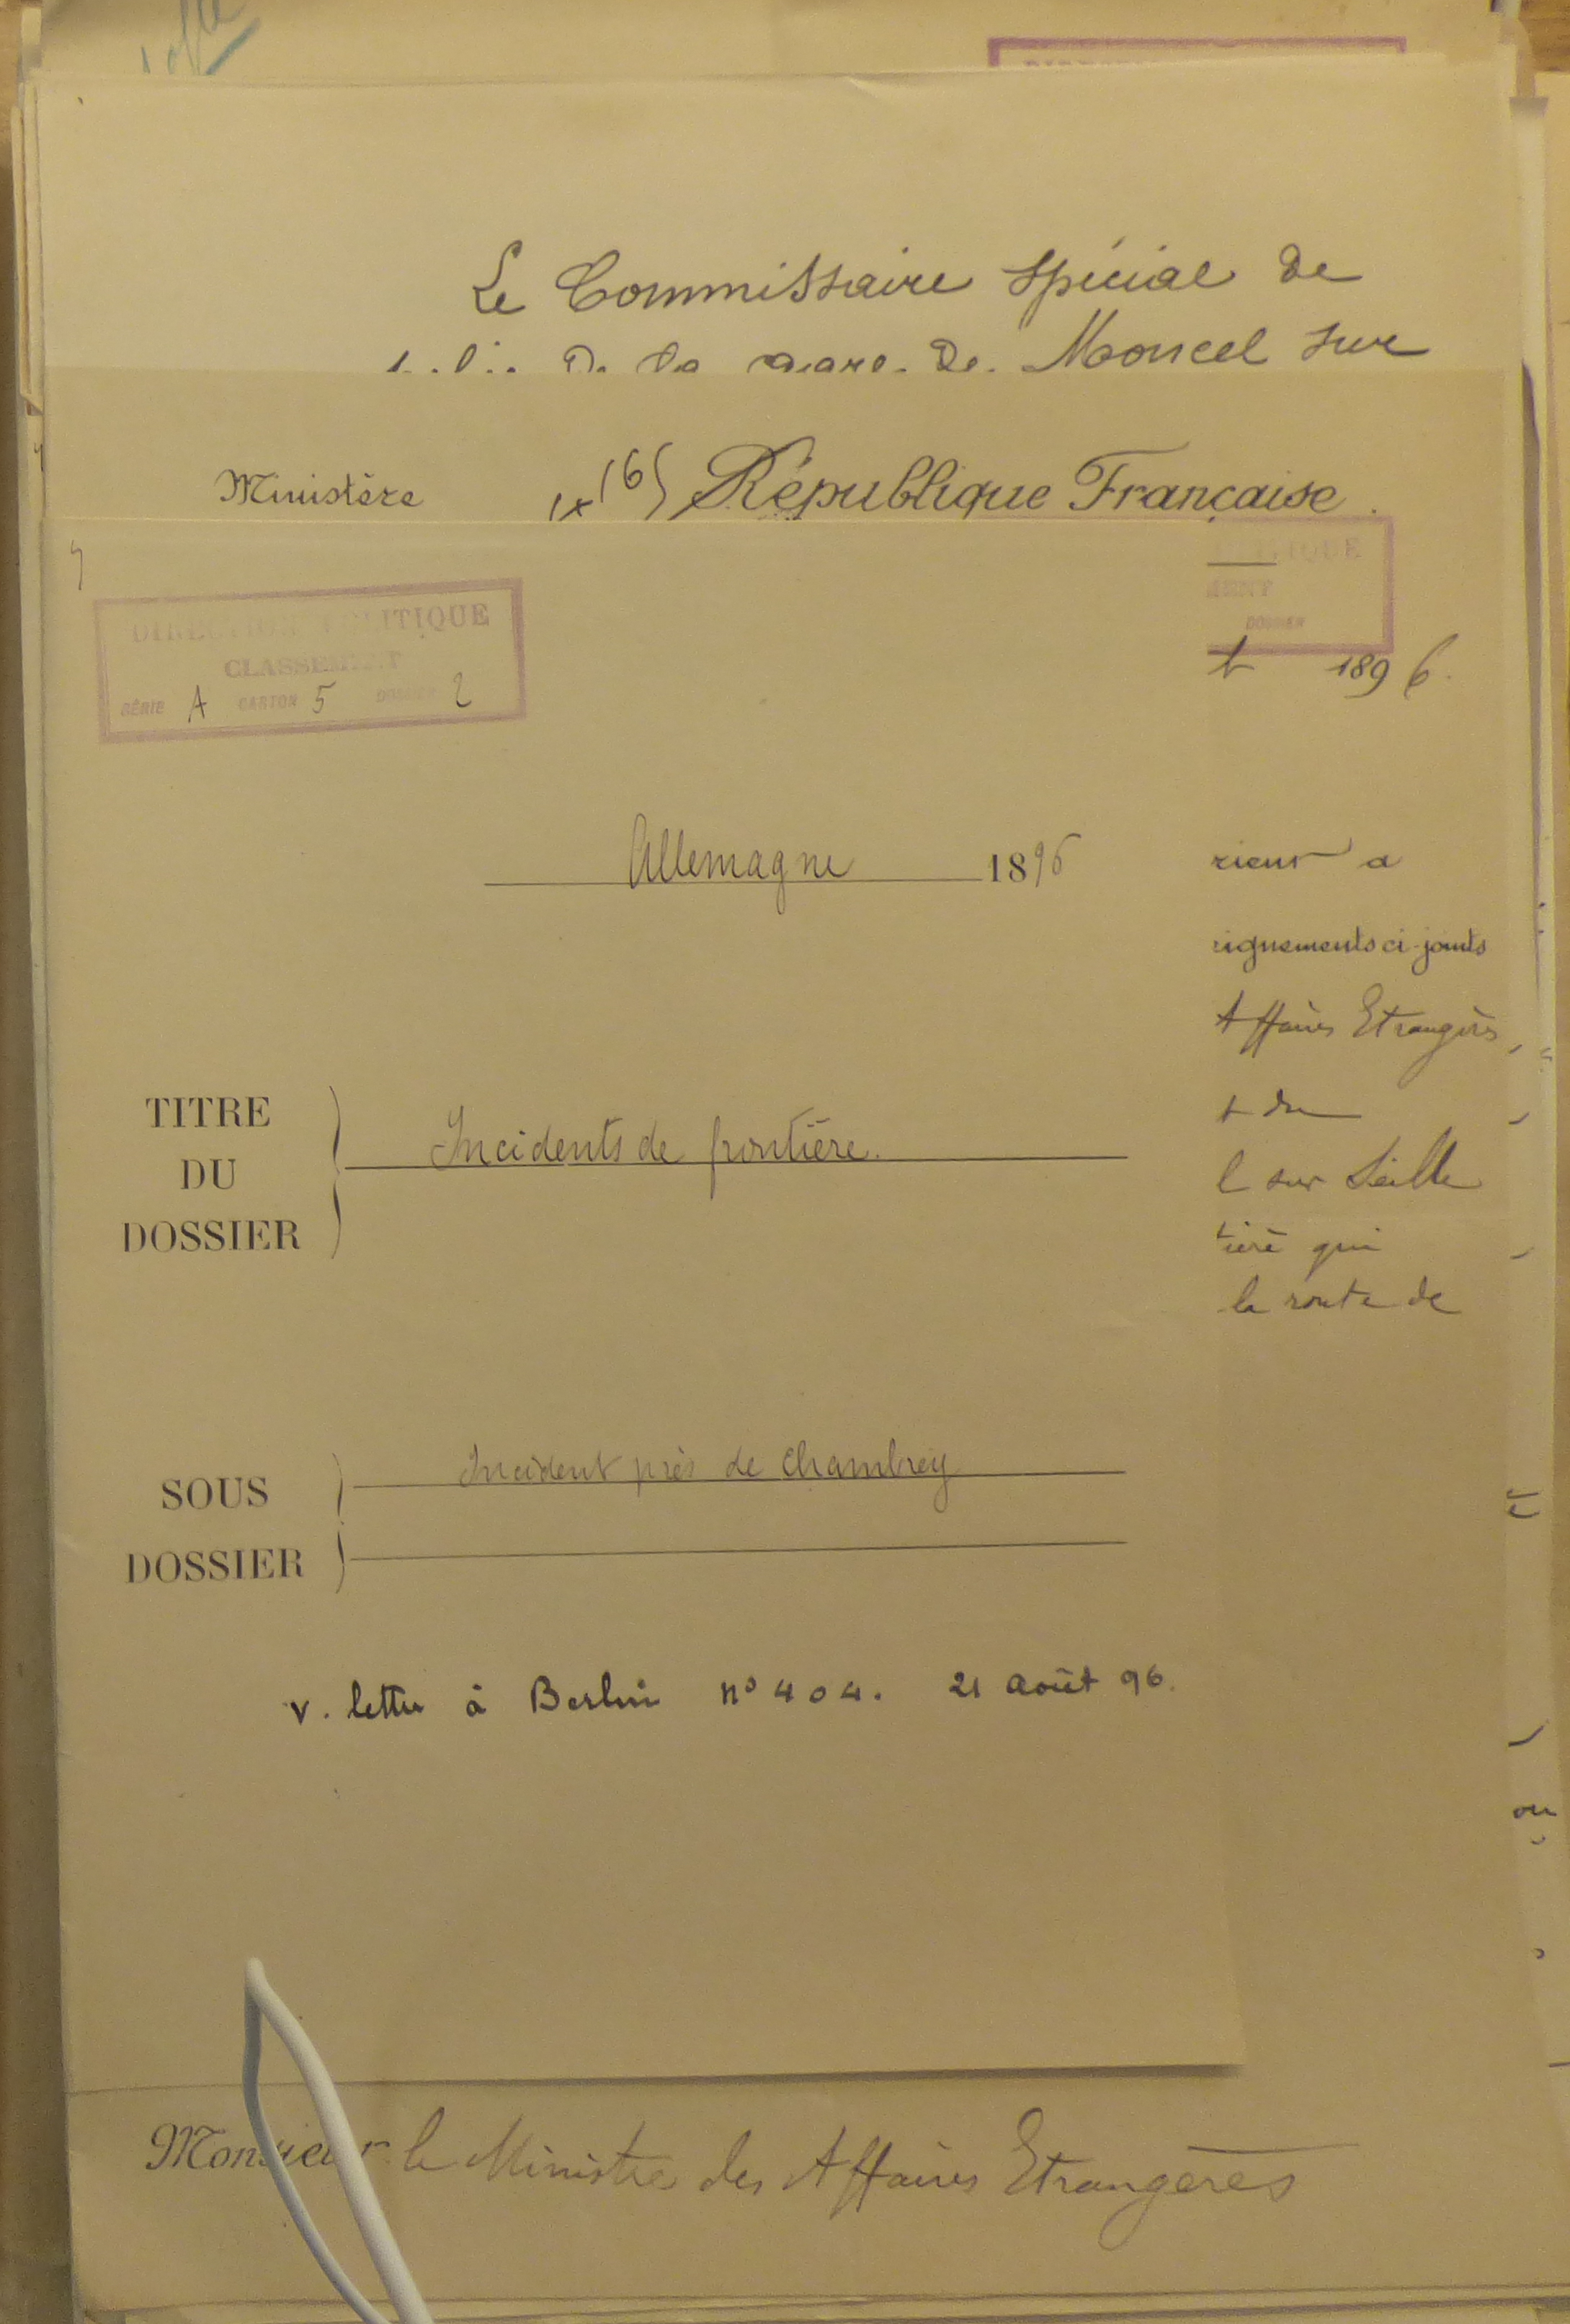 Le Commissaire Spécial de
de la gare de Moncel sur
Ministère
République Française.
DIRECTION POLITIQUE
CLASSEMENT
SÉRIE A CARTON 5 DOSSIER 2
TIQUE
MENT
DOSSIER
t 1896.
Allemagne 1896
rieur a
ignements ci-joints
Affaires Etrangères
t du
l sur Seille
tière qui
la route de
TITRE
DU
DOSSIER
Incidents de frontière.
SOUS
DOSSIER
Incident près de Chambrey
v. lettre à Berlin nº 404. 21 août 96.
ou
Monsieur le Ministre des Affaires Etrangères